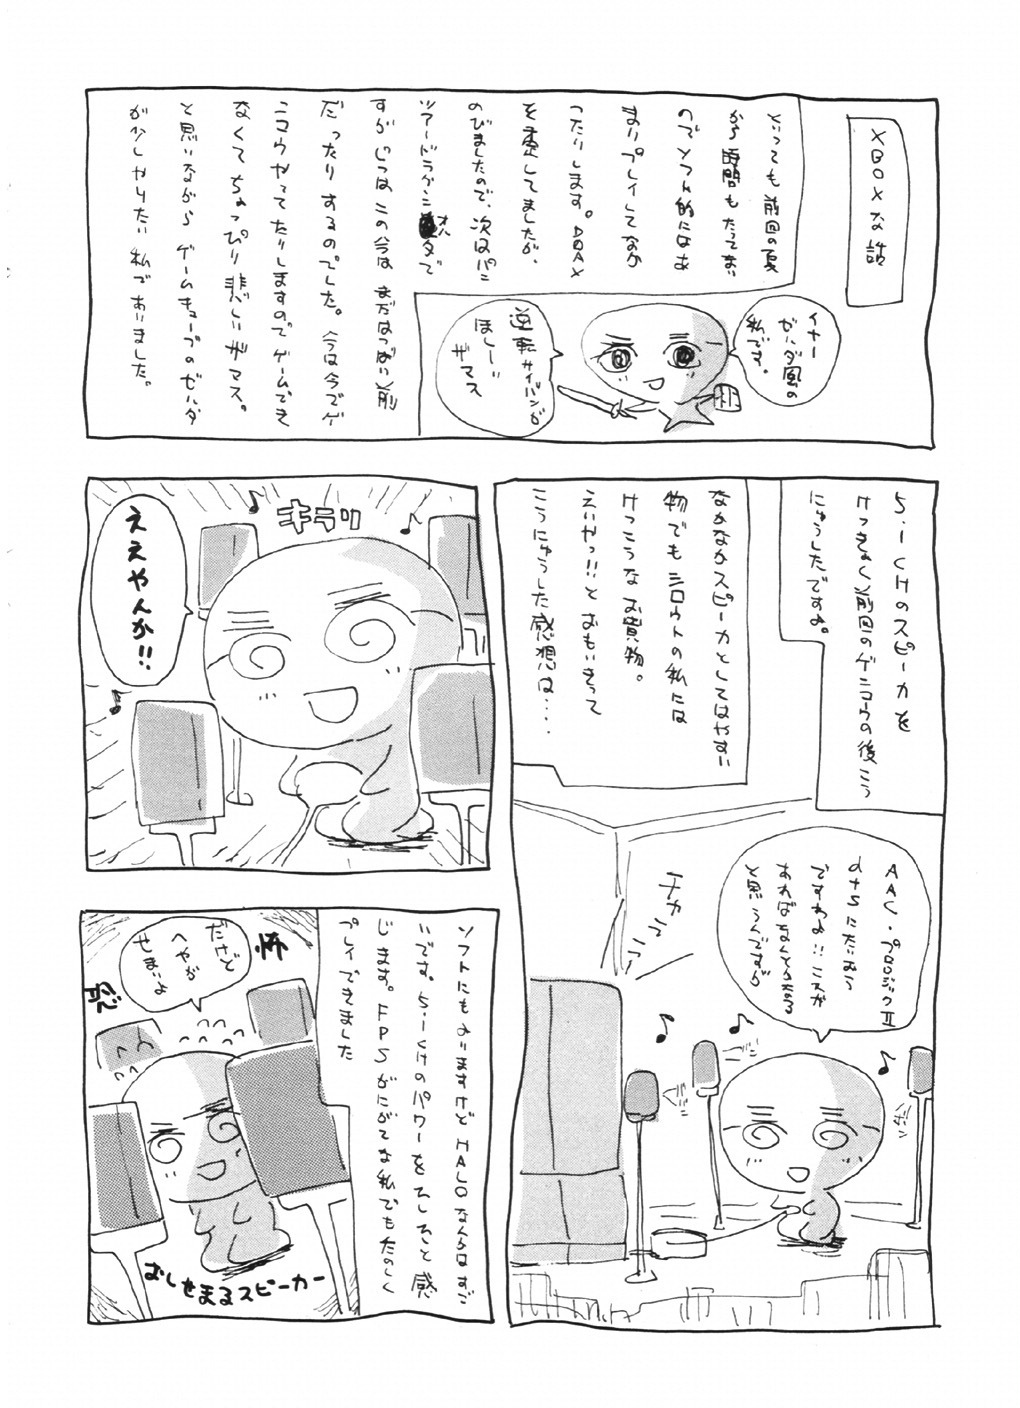 XBOXな話
といっても前回の夏
から時間もたってまい
のでソフト的にはあ
まりプレイしてなか
ったりします。DOAX
を楽してましたが、
のびましたので、次はパン
ツァードラグーン オルタで
すが じつはこの今は まだはつばい前
だったり するのでした。今は今でゲ
ニコウやってたりしますので ゲームでき
なくて ちょっぴり 悲しいザマス。
と思いながら ゲームキューブのゼルダ
が少しやりたい 私でありました。
イナー
ゼルダ風の
私です。
逆転サイバンが
ほしーい
ザマス
5.1CHのスピーカを
けっきょく前回のゲンコウの後こう
にゅうしたですよ。
なかなかスピーカとしてはやすい
物でも シロウトの私には
けっこうな お買物。
えいやっ!!と おもいきって
こうにゅうした感想は・・・・
AAC・プロロジックII
dtsにたいおう
ですわよ!!これが
あればなんでもなる
と思うんですが
チカッ
キラリ
ええやんか!!
ソフトにもよりますけど HALOなんかはすご
いです。5.1CHのパワーをひしひしと 感
じます。FPSがにがてな私でも たのしく
プレイできました
だけど
へやが
せまいよ
怖
恐
おしせまるスピーカー